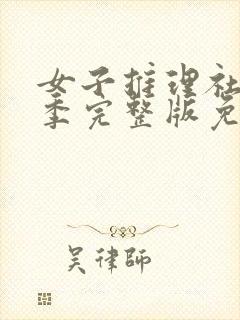 女子推理社
季完整版免
吴律师